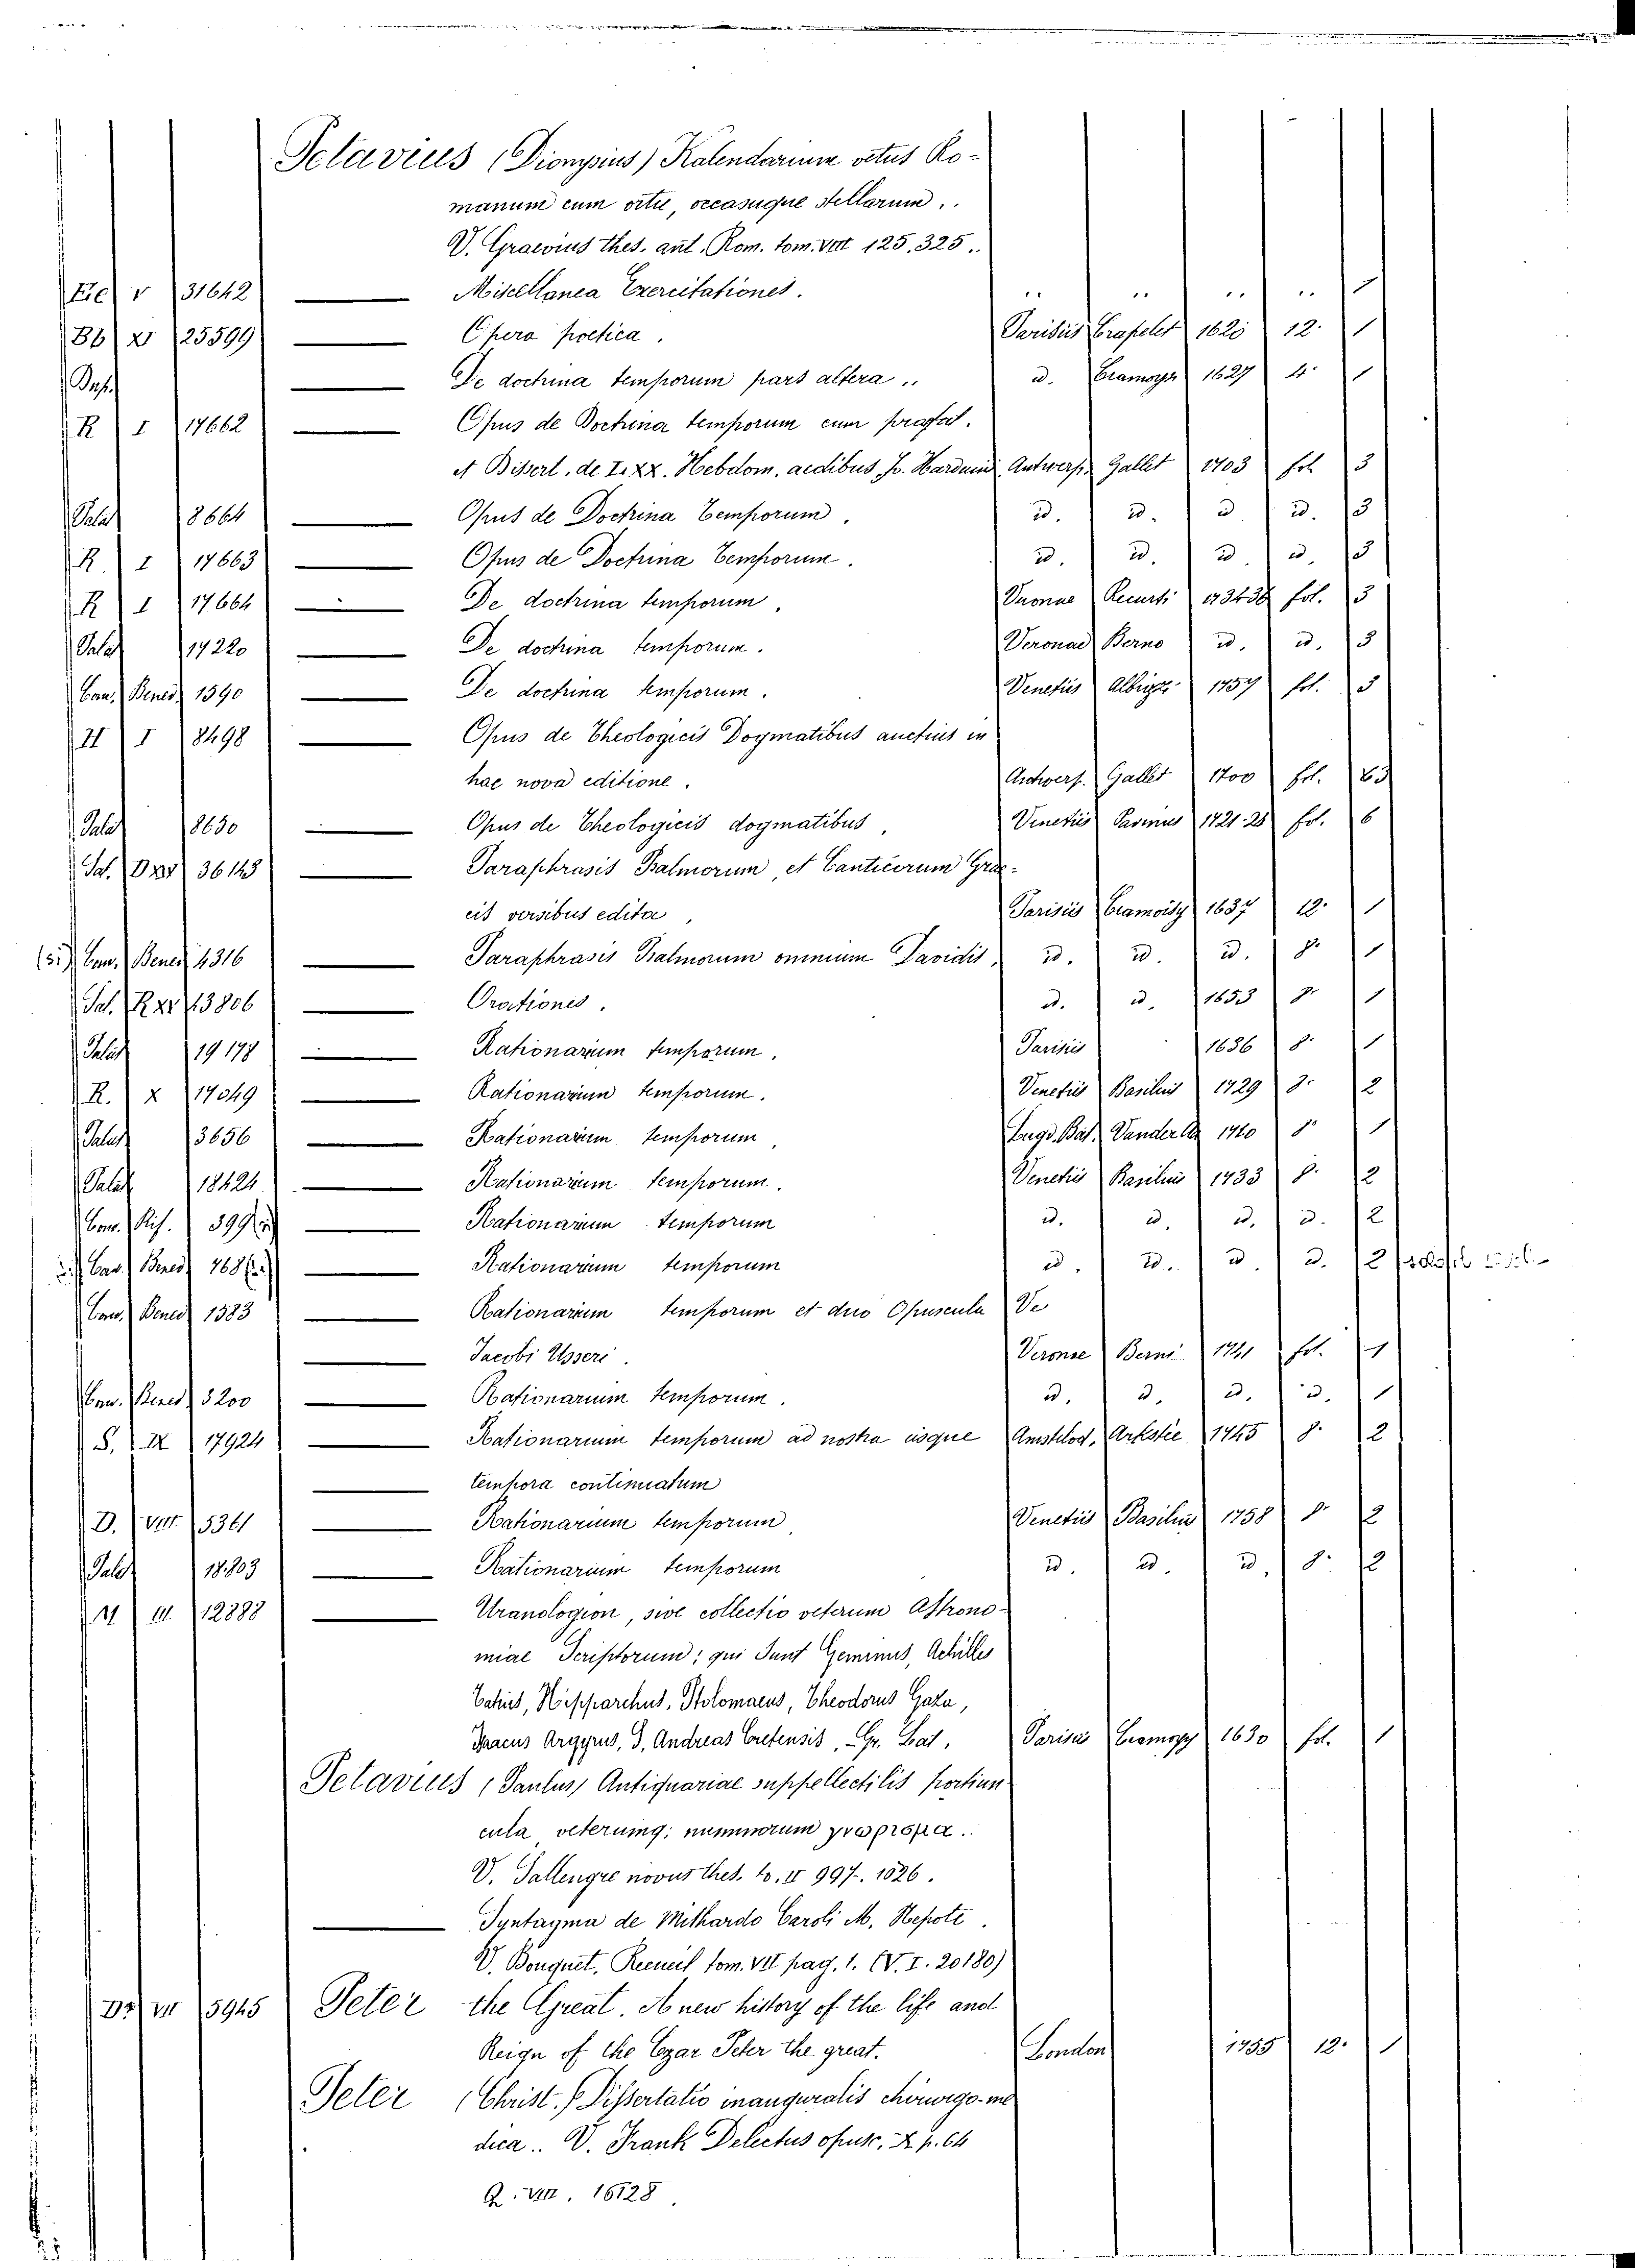 Petavius (Dionysius) Kalendarium vetus Ro-
manum cum ortu, occasuque stellarum..
V. Graevius thes. ant. Rom. tom. VIII 125. 325..
V 31642 Miscellanea Exercitationes. " " " " 1
Bb XI 25599 Opera poetica. Parisiis 1620 12. 1
De doctrina temporum pars altera.. id. Cramoysi 1627 4. 1
R I 17662 Opus de Doctrina temporum cum praefat.
et Dissert. de LXX. Hebdom. aedibus Jo. Harduini Antwerp. Gallet 1703 fol 3
Palat 8664 Opus de Doctrina Temporum. id. id. id. id. 3
R. I 17663 Opus de Doctrina Temporum. id. id. id. id. 3
R I 17664 De doctrina temporum. fol. 3
Palat 17220 De doctrina temporum. Veronae Berno id. id. 3
Can. Bened. 1590 De doctrina temporum. Venetiis 1757 fol. 3
H I 8498 Opus de Theologicis Dogmatibus auctius in
hac nova editione. Antwerp. Gallet 1700 fol.
Palat 8650 Opus de Theologicis dogmatibus, Venetiis 1721.28 fol. 6
Sal. 36143 Paraphrasis Psalmorum, et Canticorum Grae-
cis versibus edita, Parisiis Cramoisy 1637 12. 1
Can. Bened. 4316 Paraphrasis Psalmorum omnium Davidis, id. id. id. 8. 1
Sal. R XI 43806 Orationes. id. id. 1653 8. 1
Palat 19178 Rationarium temporum. Parisiis 1636 8. 1
R. X 17049 Rationarium temporum. Venetiis Basilius 1729 8. 2
Palat 3656 Rationarium temporum, Lugd. Bat. Vander Aa 1710 8. 1
Palat 18424 Rationarium temporum. Venetiis Basilius 1733 8. 2
Can. Ris. 399 Rationarium temporum id. id. id. id. 2
Can. Bened. 768 Rationarium temporum id. id. id. id. 2
Can. Bened. 1583 Rationarium temporum et duo Opuscula Ve
Jacobi Usseri. Veronae Berni 1741 fol. 1
Can. Bened. 3200 Rationarium temporum. id. id. id. id. 1
S. IX 17924 Rationarium temporum ad nostra usque Amstelod. Arkstée 1745 8. 2
tempora continuatum
D. VIII 5361 Rationarium temporum, Venetiis Basilius 1758 8. 2
Palat 18303 Rationarium temporum id. id. id. 8. 2
M III. 12888 Uranologion, sive collectio veterum Astrono-
miae Scriptorum; qui sunt Geminus, Achilles
Tatius, Hipparchus, Ptolomaeus, Theodorus Gaza,
Isaacus Argyrus, S. Andreas Cretensis, Gr. Lat. Parisiis Cramoysy 1630 fol. 1
Petavius (Paulus) Antiquariae suppellectilis portiun-
cula veterumq; nummorum γνωρισμα.
V. Sallengre novus thes. to. II 997. 1026.
Syntagma de Nithardo Caroli M. Nepote.
V. Bouquet, Recueil tom. VII pag. 1. (V. I. 20180)
VII 5945 Peter the Great. A new history of the life and
Reign of the Czar Peter the great. London 1755 12. 1
Peter (Christ.) Dissertatio inauguralis chirurgo-me
dica.. V. Frank Delectus opusc. X p. 64
Q. VIII. 16128